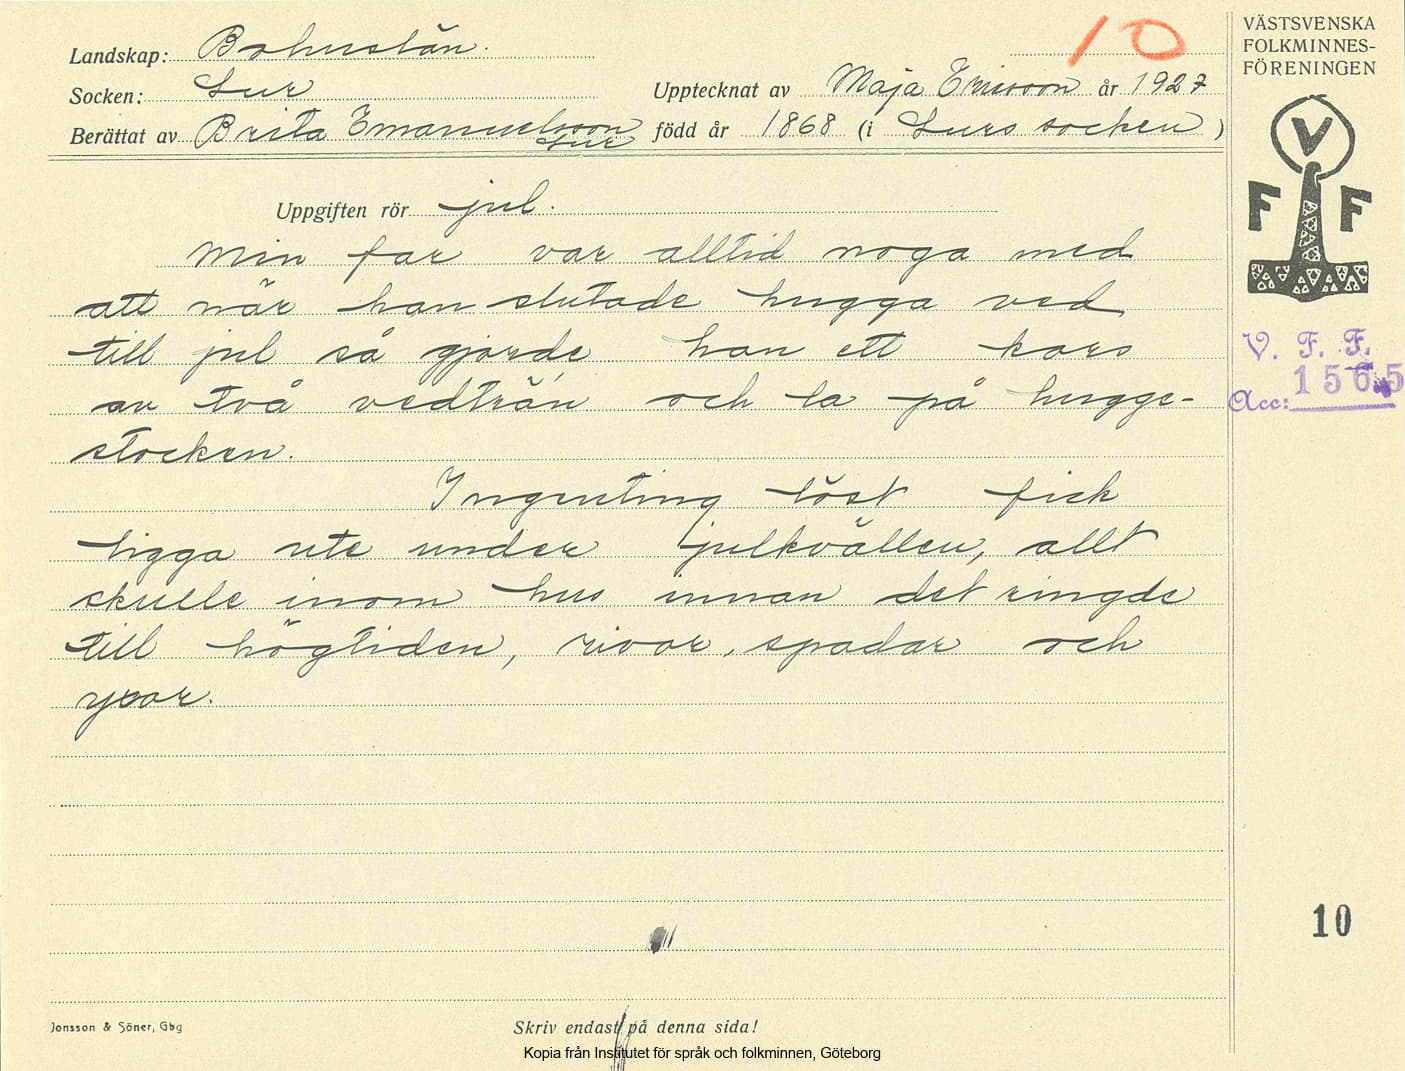 10
VÄSTSVENSKA
FOLKMINNES-
FÖRENINGEN
Landskap: Bohuslän.
Socken: Lur
Upptecknat av Maja Ericsson år 1927
Berättat av Brita Emanuelsson
Lur
född år 1868 (i Lurs socken)
V
F F
Uppgiften rör jul.
Min far var alltid noga med
att när han slutade hugga ved
till jul så gjorde han ett kors
av två vedträn och la på hugge-
stocken.
Ingenting löst fick
ligga ute under julkvällen, allt
skulle inom hus innan det ringde
till högtiden, rivor, spadar och
yxor.
V. F. F.
Acc: 1565
10
Jonsson & Söner, Gbg
Skriv endast på denna sida!
Kopia från Institutet för språk och folkminnen, Göteborg